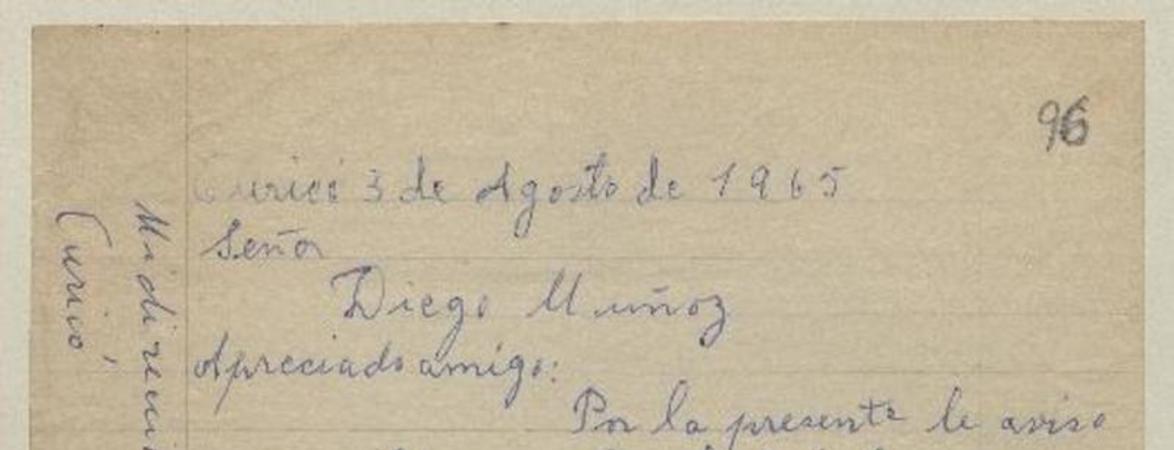 96
Curicó 3 de Agosto de 1965
Señor
Diego Muñoz
Apreciado amigo:
Por la presente le aviso
Mi dirección
Curicó